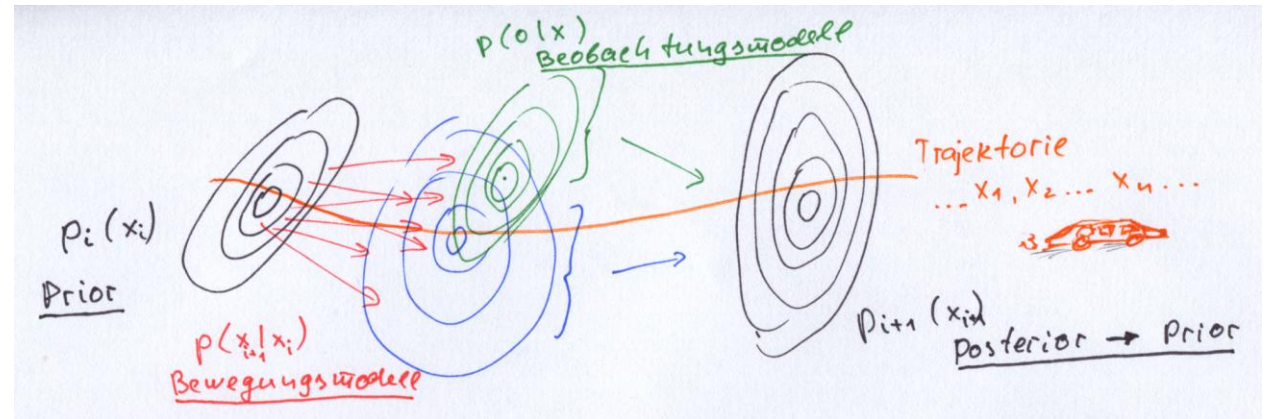 p(o|x)
Beobachtungsmodell
Trajektorie
... x₁, x₂ ... xₙ ...
pᵢ(xᵢ)
Prior
p(xᵢ₊₁|xᵢ)
Bewegungsmodell
pᵢ₊₁(xᵢ₊₁)
Posterior → Prior